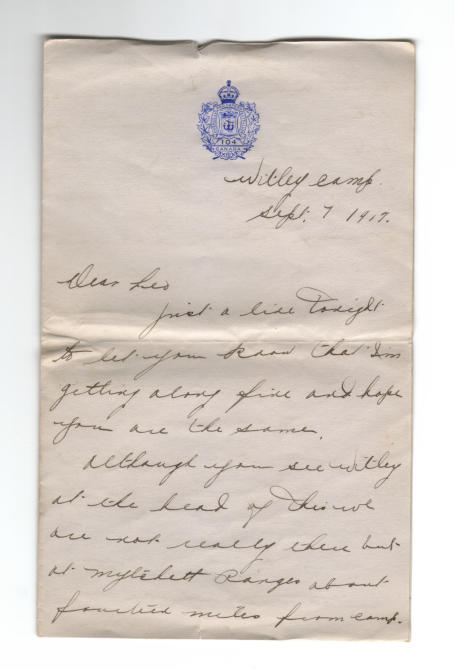 104
CANADA
Witley camp.
Sept. 7 1917.
Dear Leo
just a line tonight
to let you know that I'm
getting along fine and hope
you are the same.
although you see witley
at the head of this we
are not really there but
at mytchett Ranges about
fourteen miles from camp.